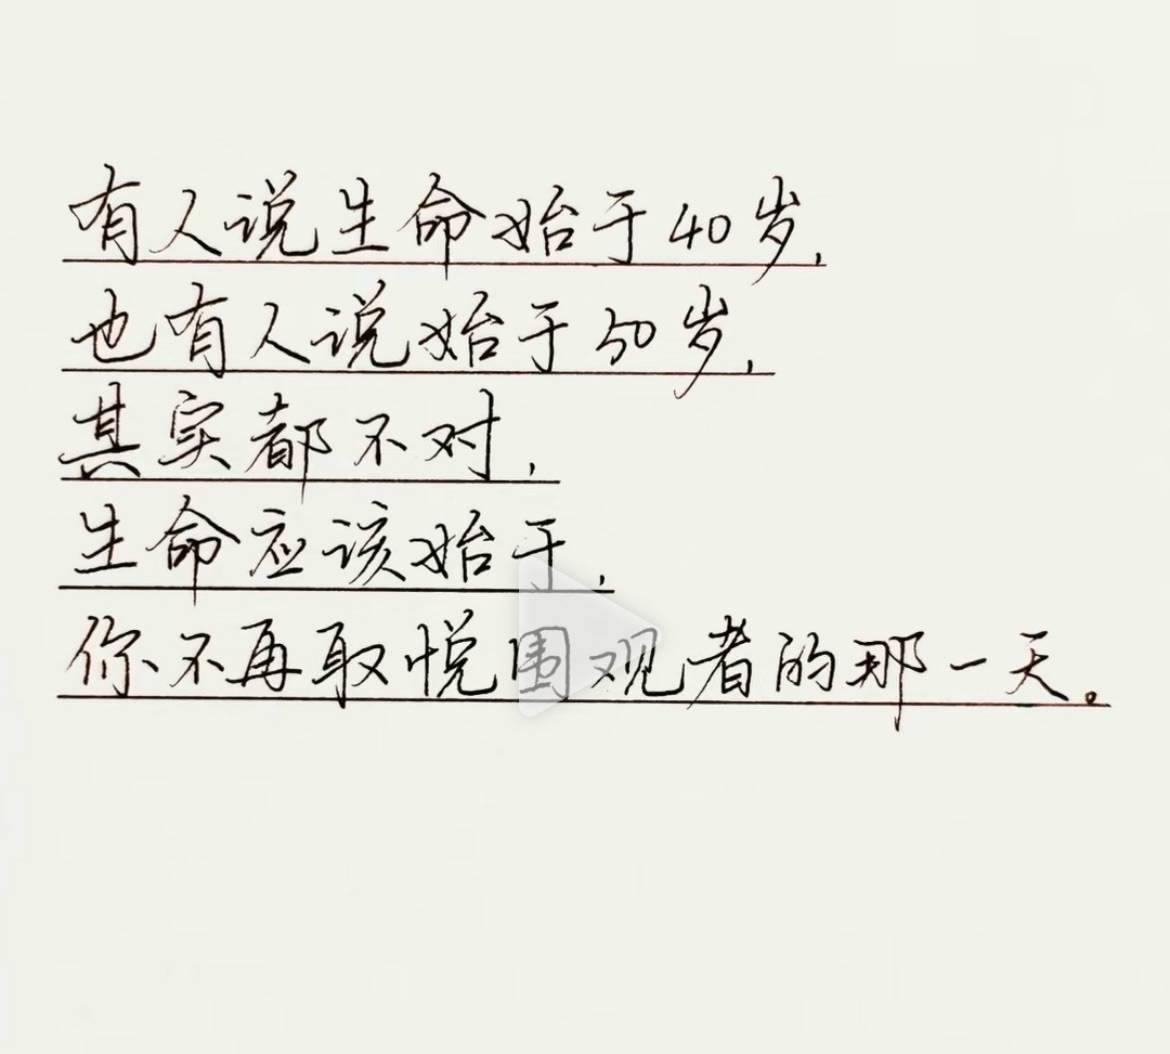 有人说生命始于40岁,
也有人说始于50岁,
其实都不对,
生命应该始于,
你不再取悦围观者的那一天。